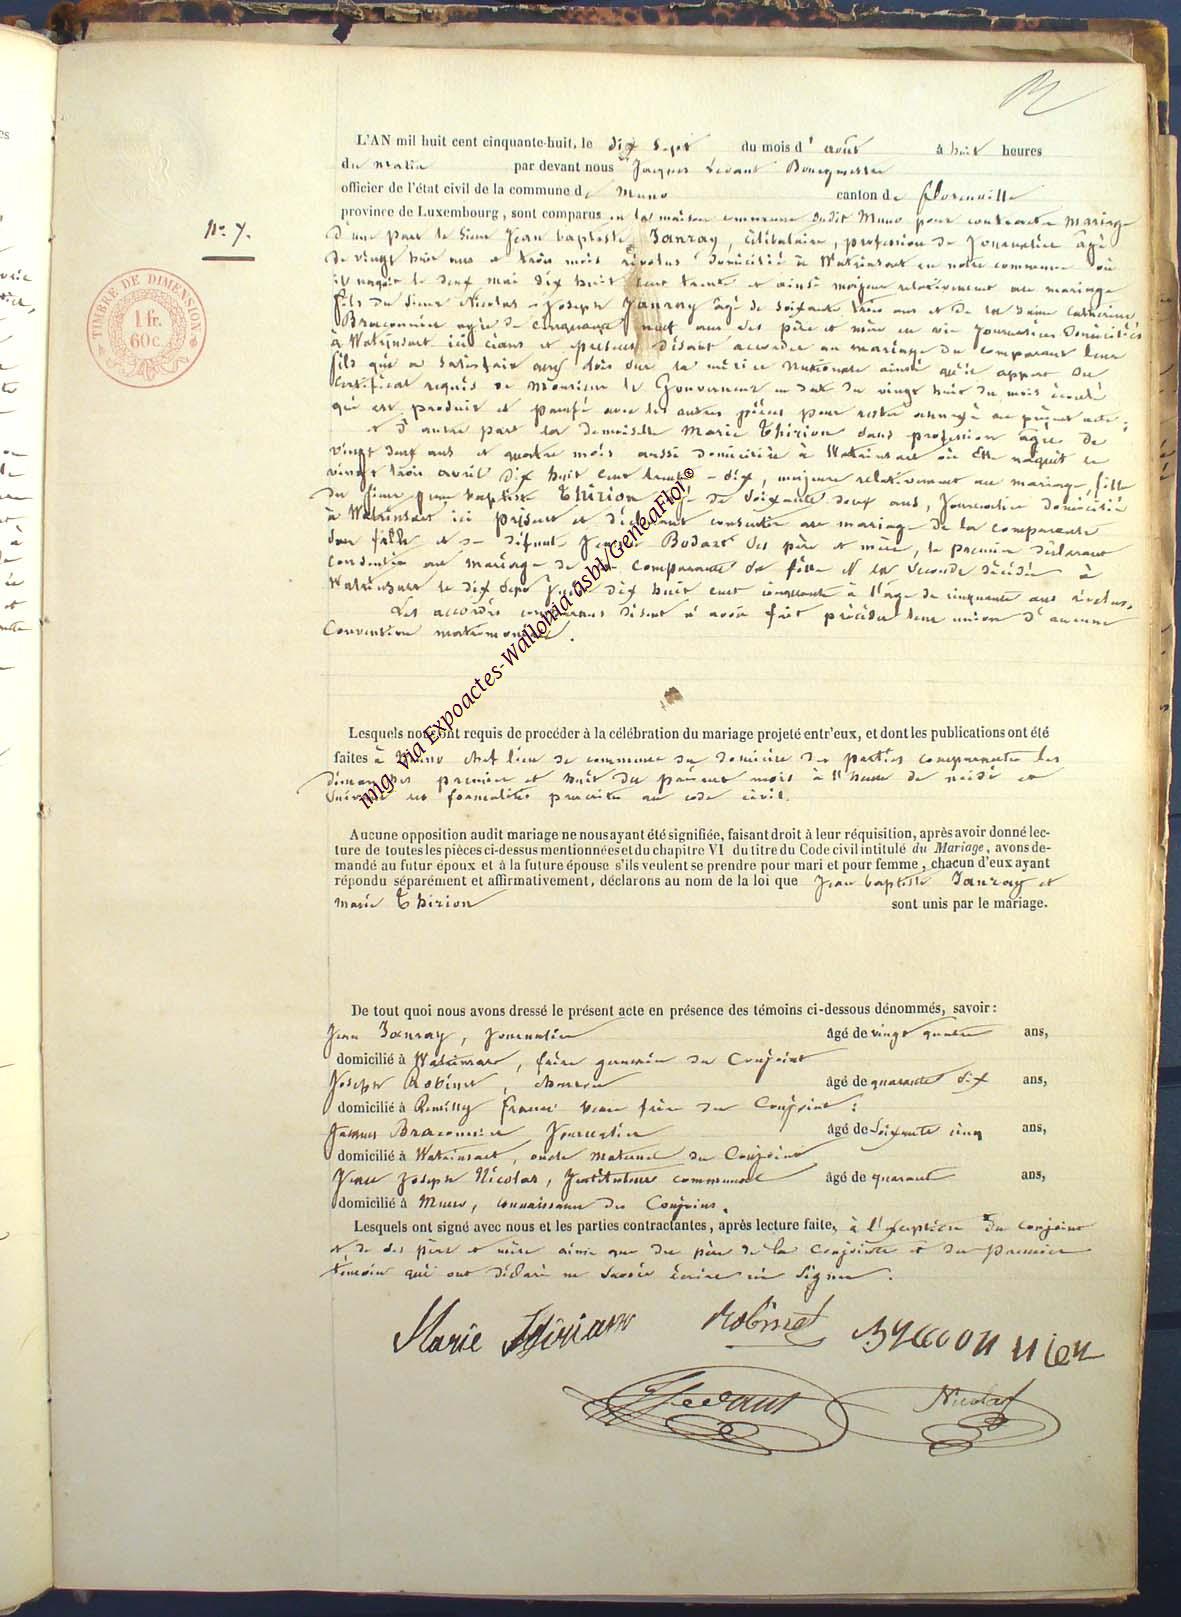 N° 7.
TIMBRE DE DIMENSION
1 fr.
60 c.
L'AN mil huit cent cinquante-huit, le dix sept du mois d'août à huit heures
du matin par devant nous Jacques Ledant Bourgmestre
officier de l'état civil de la commune de Muno canton de Florenville
province de Luxembourg, sont comparus en la maison commune dudit Muno pour contracter mariage
d'une part le Sieur Jean baptiste Janray, célibataire, profession de Journalier âgé
de vingt huit ans et trois mois révolus domicilié à Watrinsart en notre commune où
il naquit le deux mai dix huit cent trente et ainsi majeur relativement au mariage
fils du Sieur Nicolas Joseph Janray âgé de soixante trois ans et de la dame Catherine
Braconnier agée de cinquante neuf ans ses père et mère en vie Journaliers domiciliés
à Watrinsart ici présens et disant accorder au mariage du comparant leur
fils qui a satisfait aux lois sur la milice nationale ainsi qu'il appert du
certificat requis de Monsieur le Gouverneur en date du vingt huit du mois écoulé
qui est produit et paraphé avec les autres pièces pour rester annexé au présent acte;
et d'autre part la demoiselle Marie Thirion sans profession âgée de
vingt deux ans et quatre mois aussi domiciliée à Watrinsart où Elle naquit le
vingt trois avril dix huit cent trente-six, majeure relativement au mariage, fille
du Sieur Jean baptiste Thirion âgé de soixante deux ans, Journalier domicilié
à Watrinsart ici présent et déclarant consentir au mariage de la comparante
sa fille et de défunte Bodart ses père et mère, le premier déclarant
consentir au mariage de la comparante sa fille et la seconde décédée à
Watrinsart le dix sept dix huit cent cinquante à l'âge de cinquante ans révolus.
Les accordés comparans disent n'avoir fait précéder leur union d'aucune
Convention matrimoniale.
Lesquels nous ont requis de procéder à la célébration du mariage projeté entr'eux, et dont les publications ont été
faites à Muno chef lieu de commune du domicile des parties comparantes les
dimanches premier et huit du présent mois à l'heure de midi et
suivant les formalités prescrites au code civil.
Aucune opposition audit mariage ne nous ayant été signifiée, faisant droit à leur réquisition, après avoir donné lec-
ture de toutes les pièces ci-dessus mentionnées et du chapitre VI du titre du Code civil intitulé du Mariage, avons de-
mandé au futur époux et à la future épouse s'ils veulent se prendre pour mari et pour femme, chacun d'eux ayant
répondu séparément et affirmativement, déclarons au nom de la loi que Jean baptiste Janray et
Marie Thirion sont unis par le mariage.
De tout quoi nous avons dressé le présent acte en présence des témoins ci-dessous dénommés, savoir:
Jean Janray, Journalier âgé de vingt quatre ans,
domicilié à Watrinsart, frère germain du Conjoint
Joseph Robinet, âgé de quarante dix ans,
domicilié à Remilly France beau frère du Conjoint:
Jacques Braconnier Journalier âgé de soixante cinq ans,
domicilié à Watrinsart, oncle maternel du Conjoint
Jean Joseph Nicolas, Instituteur communal âgé de quarante ans,
domicilié à Muno, connaissance des Conjoins.
Lesquels ont signé avec nous et les parties contractantes, après lecture faite, à l'exception du conjoint
et de ses père et mère ainsi que du père de la conjointe et du premier
témoin qui ont déclaré ne savoir écrire ni signer.
Marie Thirion Robinet Braconnier
J Ledant Nicolas
img. via Expoactes-Wallonia asbl/GeneaFlor©